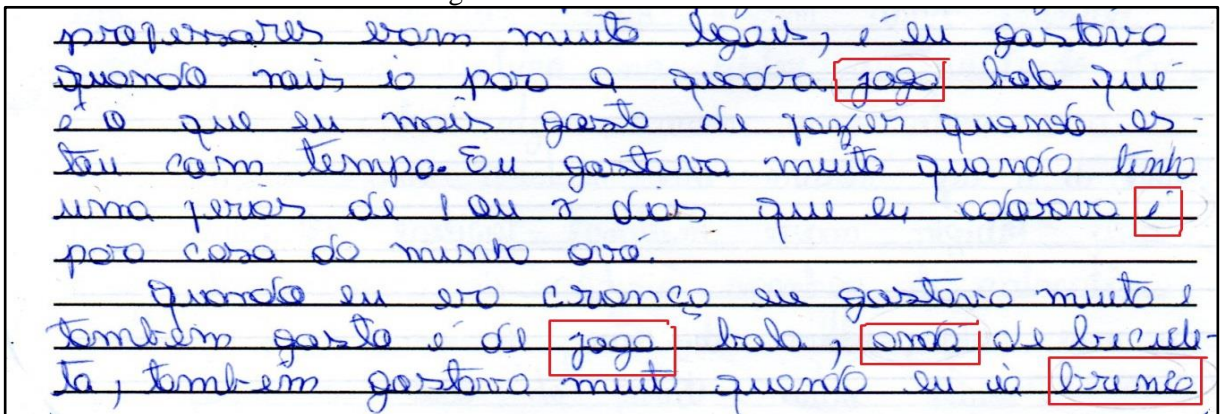 professores eram muito legais, é eu gostava
quando nois ia para a quadra joga bola que
é o que eu mais gosto de fazer quando es-
tou com tempo. Eu gostava muito quando tinha
uma ferias de 1 ou 7 dias que eu adorava i
para casa da minha avó.
Quando eu era criança eu gostava muito e
também gosto é de joga bola, anda de bicicle-
ta, também gostava muito quando eu ia brinca